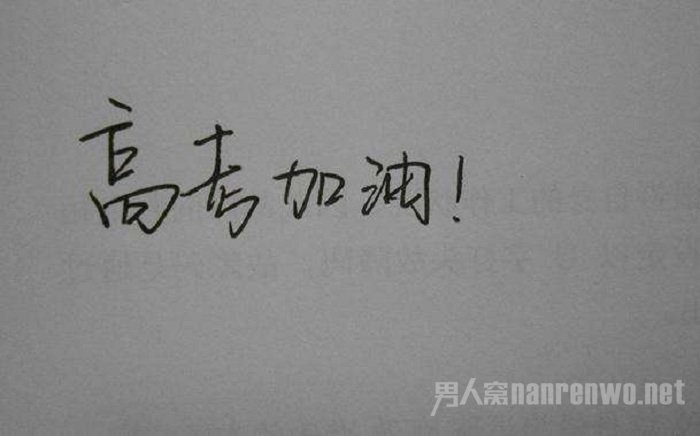 高考加油!
男人窝nanrenwo.net